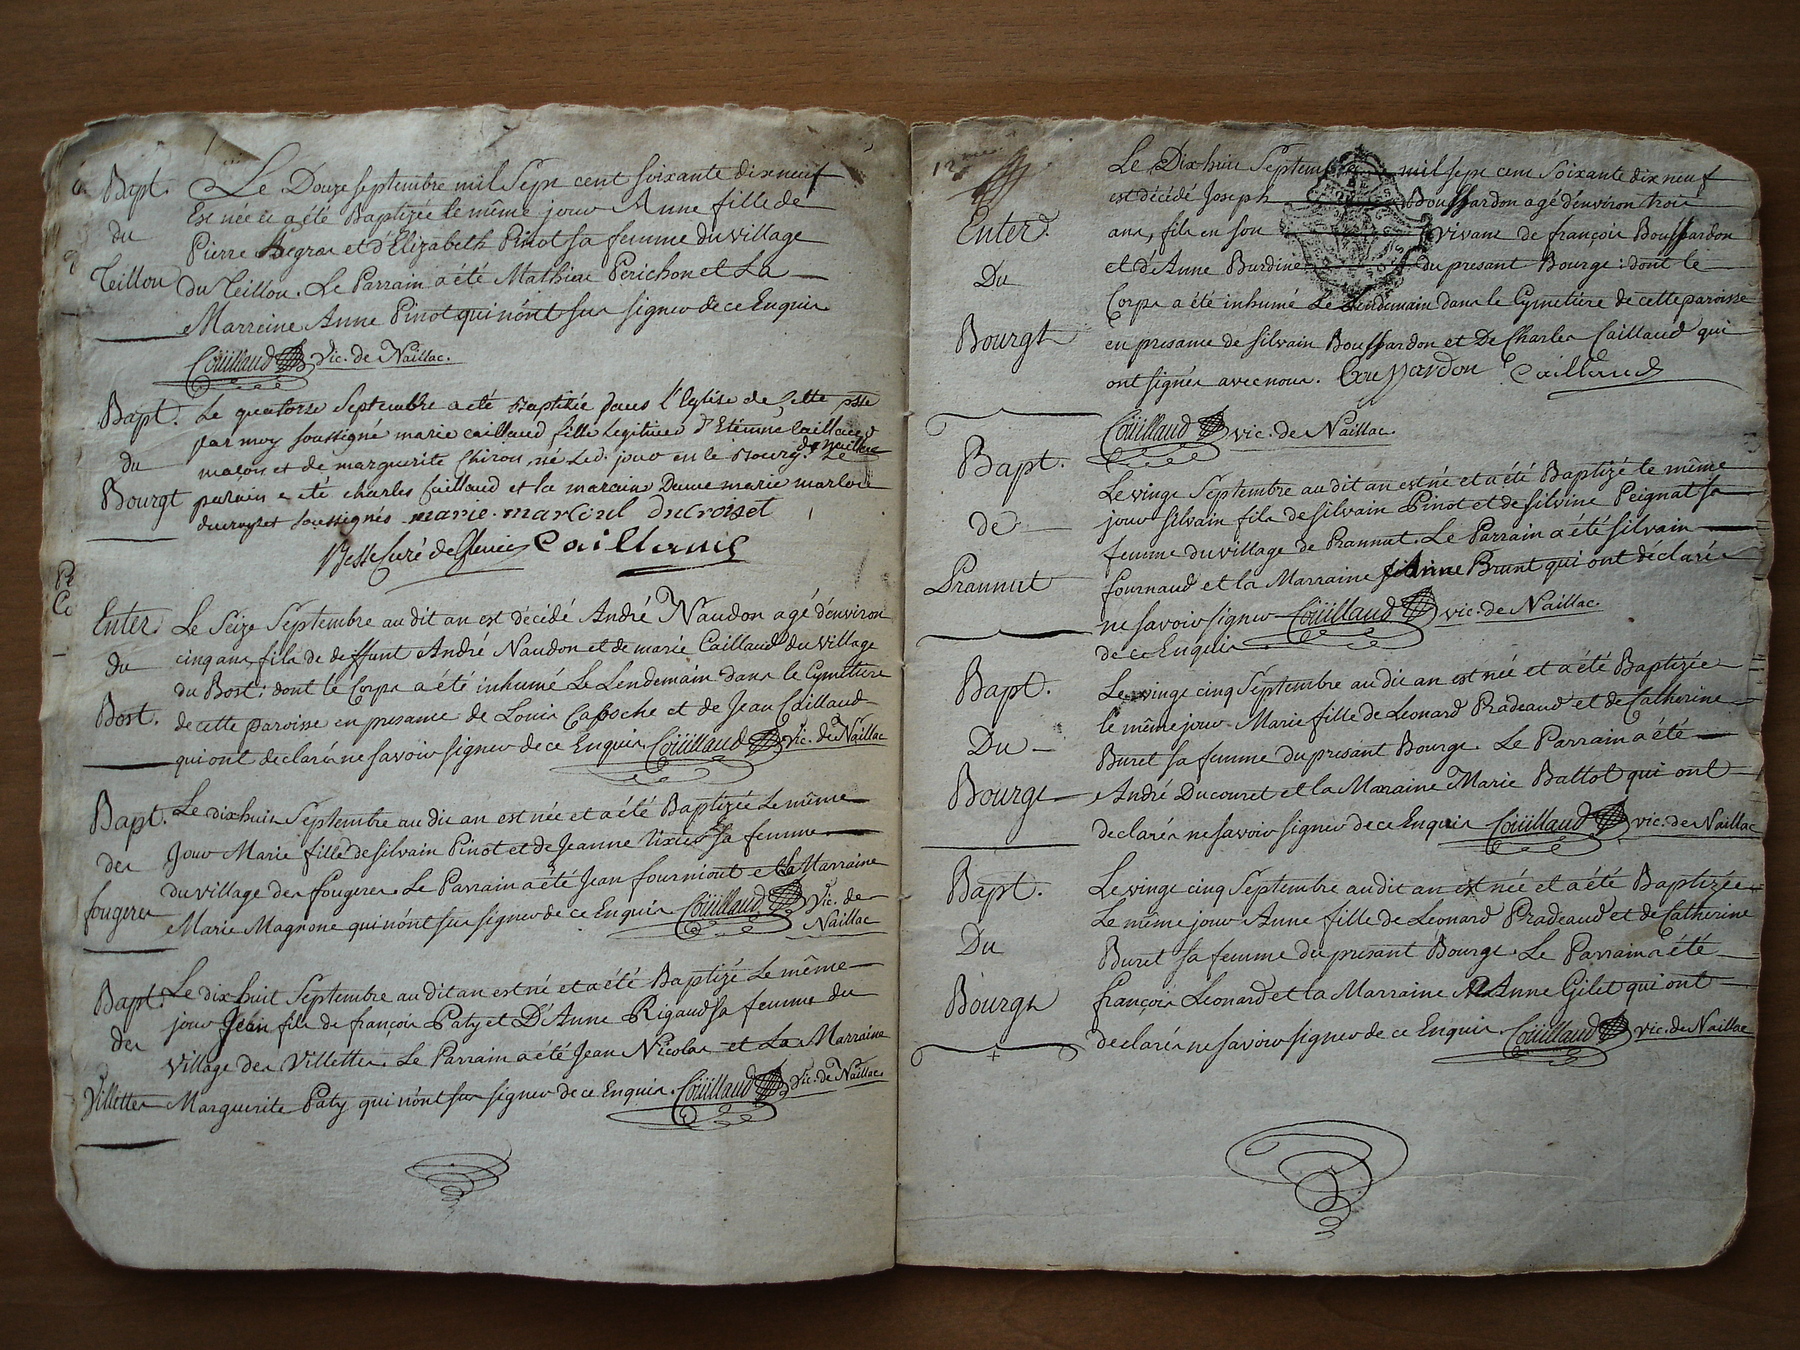 Bapt. Le Douze septembre mil Sept cent soixante dixneuf
Est née et a été Baptizée le même jour Anne fille de
du
Pierre Legras et d'Elizabeth Pinot sa femme du village
Teillou du Teillou. Le Parrain a été Mathias Perichon et La
Marreine Anne Pinot qui n'ont sus signer de ce Enquis
Coüillaud vic. de Naillac.
Bapt. Le quatorse Septembre a eté Baptizée dans l'Eglise de Cette psse
par moy soussigné marie caillaud fille legitime d'Etienne Caillaud
du maçon et de marguerite Chiron, né led. jour en le Bourg de Naillac Le
Bourgt parain a eté charles Caillaud et la maraine Dame marie
soussignés marie ducroiset
Besse Curé de caillaud
Enter. Le Seize Septembre au dit an est décédé André Naudon agé d'environ
du cinq ans, fils de deffunt André Naudon et de marie Caillaud du village
du Bost: dont le Corps a été inhumé Le Lendemain dans le Cymetiere
Bost. de cette paroisse en presance de Louis et de Jean Caillaud
qui ont declarés ne savoir signer de ce Enquis Coüillaud vic. de Naillac
Bapt. Le dixhuit Septembre au dit an est née et a été Baptizée Le même
des Jour Marie fille de silvain Pinot et de Jeanne sa femme
du village des fougeres. Le Parrain a été Jean fourniout et La Marraine
fougeres Marie Magnone qui n'ont sus signer de ce Enquis Coüillaud Vic. de
Naillac
Bapt. Le dix huit Septembre au dit an est né et a été Baptizé Le même
des jour Jean fils de françois Paty et D'Anne Rigaud sa femme du
village des Villettes. Le Parrain a été Jean Nicolas et La Marraine
Villettes Marguerite Paty qui n'ont sus signer de ce Enquis. Coüillaud Vic. de Naillac
12me
Le Dixhuit Septembre mil sept cent Soixante dix neuf
est décédé Joseph Boussardon agé d'environ trois
Enter. ans, fils en son vivant de françois Boussardon
Du et d'Anne Burdine du presant Bourgt: dont le
Corps a été inhumé Le Lendemain dans le Cymetiere de cette paroisse
Bourgt en presance de silvain Boussardon et De Charles Caillaud qui
ont signés avec nous. Boussardon Caillaud
Coüillaud vic. de Naillac.
Bapt. Le vingt Septembre au dit an est né et a été Baptizé le même
jour silvain fils de silvain Pinot et de silvine Peignat sa
de femme du village de Prannut. Le Parrain a été silvain
Prannut fournaud et la Marraine Anne Brunt qui ont déclarés
ne savoir signer Coüillaud vic. de Naillac.
de ce Enquis
Bapt. Le vingt cinq Septembre au dit an est née et a été Baptizée
le même jour Marie fille de Leonard Pradeaud et de Catherine
Du Buret sa femme du presant Bourgt. Le Parrain a été
Bourgt André Ducouret et la Marraine Marie Battot qui ont
declarés ne savoir signer de ce Enquis Coüillaud vic. de Naillac
Bapt. Le vingt cinq Septembre au dit an est née et a été Baptizée
Le même jour Anne fille de Leonard Pradeaud et de Catherine
Du Buret sa femme du presant Bourgt. Le Parrain a été
Bourgt françois Leonard et la Marraine Anne Gilet qui ont
declarés ne savoir signer de ce Enquis Coüillaud vic. de Naillac